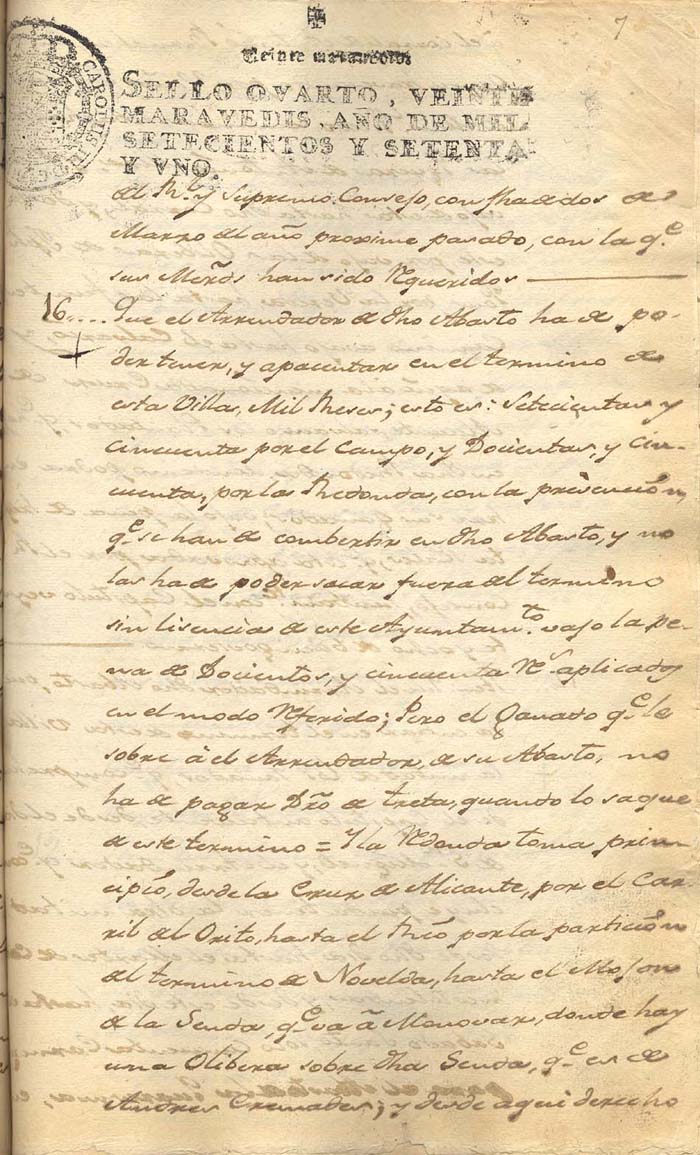 7
Veinte maravedis
SELLO QVARTO, VEINTE
MARAVEDIS, AÑO DE MIL
SETECIENTOS Y SETENTA
Y VNO.
CAROLUS III
del Rl. y Supremo Consejo, con fha de dos de
Marzo del año proximo pasado, con la qe.
sus Merñs han sido Requeridos
16.... Que el Arrendador de dho Abasto ha de po-
der tener, y apacentar en el termino de
esta Villa, Mil Reses; esto es: Setecientas y
cincuenta por el Campo, y Docientas, y cin-
cuenta, por la Redonda, con la prevención,
qe. se han de combertir en dho Abasto, y no
las ha de poder sacar fuera del termino
sin lisencia de este Ayuntamto. vajo la pe-
na de Docientos, y cincuenta Rs. aplicados
en el modo Referido; Pero el Ganado qe. le
sobre â el Arrendador, de su Abasto, no
ha de pagar Dro̅ de treta, quando lo saque
de este termino = Y la Redonda toma prin-
cipio, desde la Cruz de Alicante, por el Car-
ril del Orito, hasta el Río por la partición
del termino de Novelda, hasta el Mojon
de la Senda, qe. va â Monovar, donde hay
una Olibera sobre dha Senda, qe. es de
Andres Cremades; y desde aqui derecho